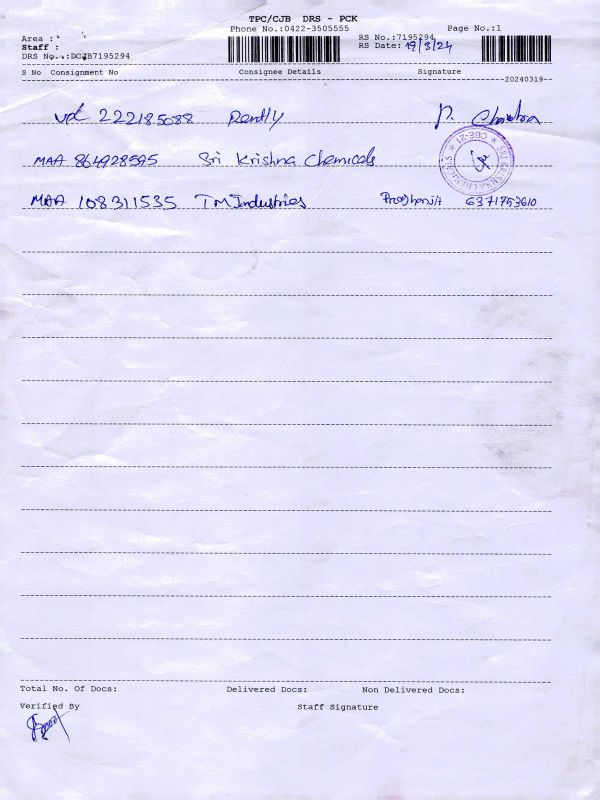 TPC/CJB DRS - PCK
Phone No.:0422-3505555
Page No.:1
Area :
RS No.:7195294
Staff :
RS Date: 19/3/24
DRS No.:DCJB7195294
S No Consignment No Consignee Details Signature
20240319
222185088 Rently P.
MAA 864928595 Sri Krishna Chemicals
CBE-21
MAA 108311535 TM Industries 6371753610
Total No. Of Docs: Delivered Docs: Non Delivered Docs:
Verified By Staff Signature